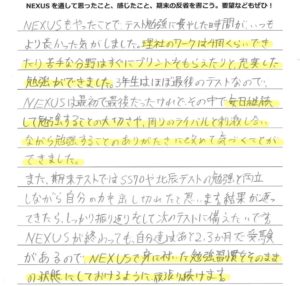 NEXUSを通して思ったこと、感じたこと、期末の反省を書こう。要望などもぜひ！
NEXUSをやったことで、テスト勉強に費やした時間が、いつも
より長かった気がしました。理社のワークは何回くらいでき
たり苦手な分野はすぐにプリントそもらえたりと、充実した
勉強ができました。3年生はほぼ最後のテストなので
NEXUSは最初で最後だったけれど、その中で毎日継続
して勉強することの大切さや、周りのライバルと切磋しあい
ながら勉強することのありがたさに改めて気づくことが
できました。
また、期末テストではSS70や北辰テストの勉強と両立
しながら自分の力を出し切れたと思います。結果が返っ
てきたら、しっかり振り返りそして次のテストに備えたいです。
NEXUSが終わっても、自分達はあと2.3か月で受験
があるので、NEXUSで身に付いた勉強習慣をそのまま
の状態にしておけるように頑張り続けます。